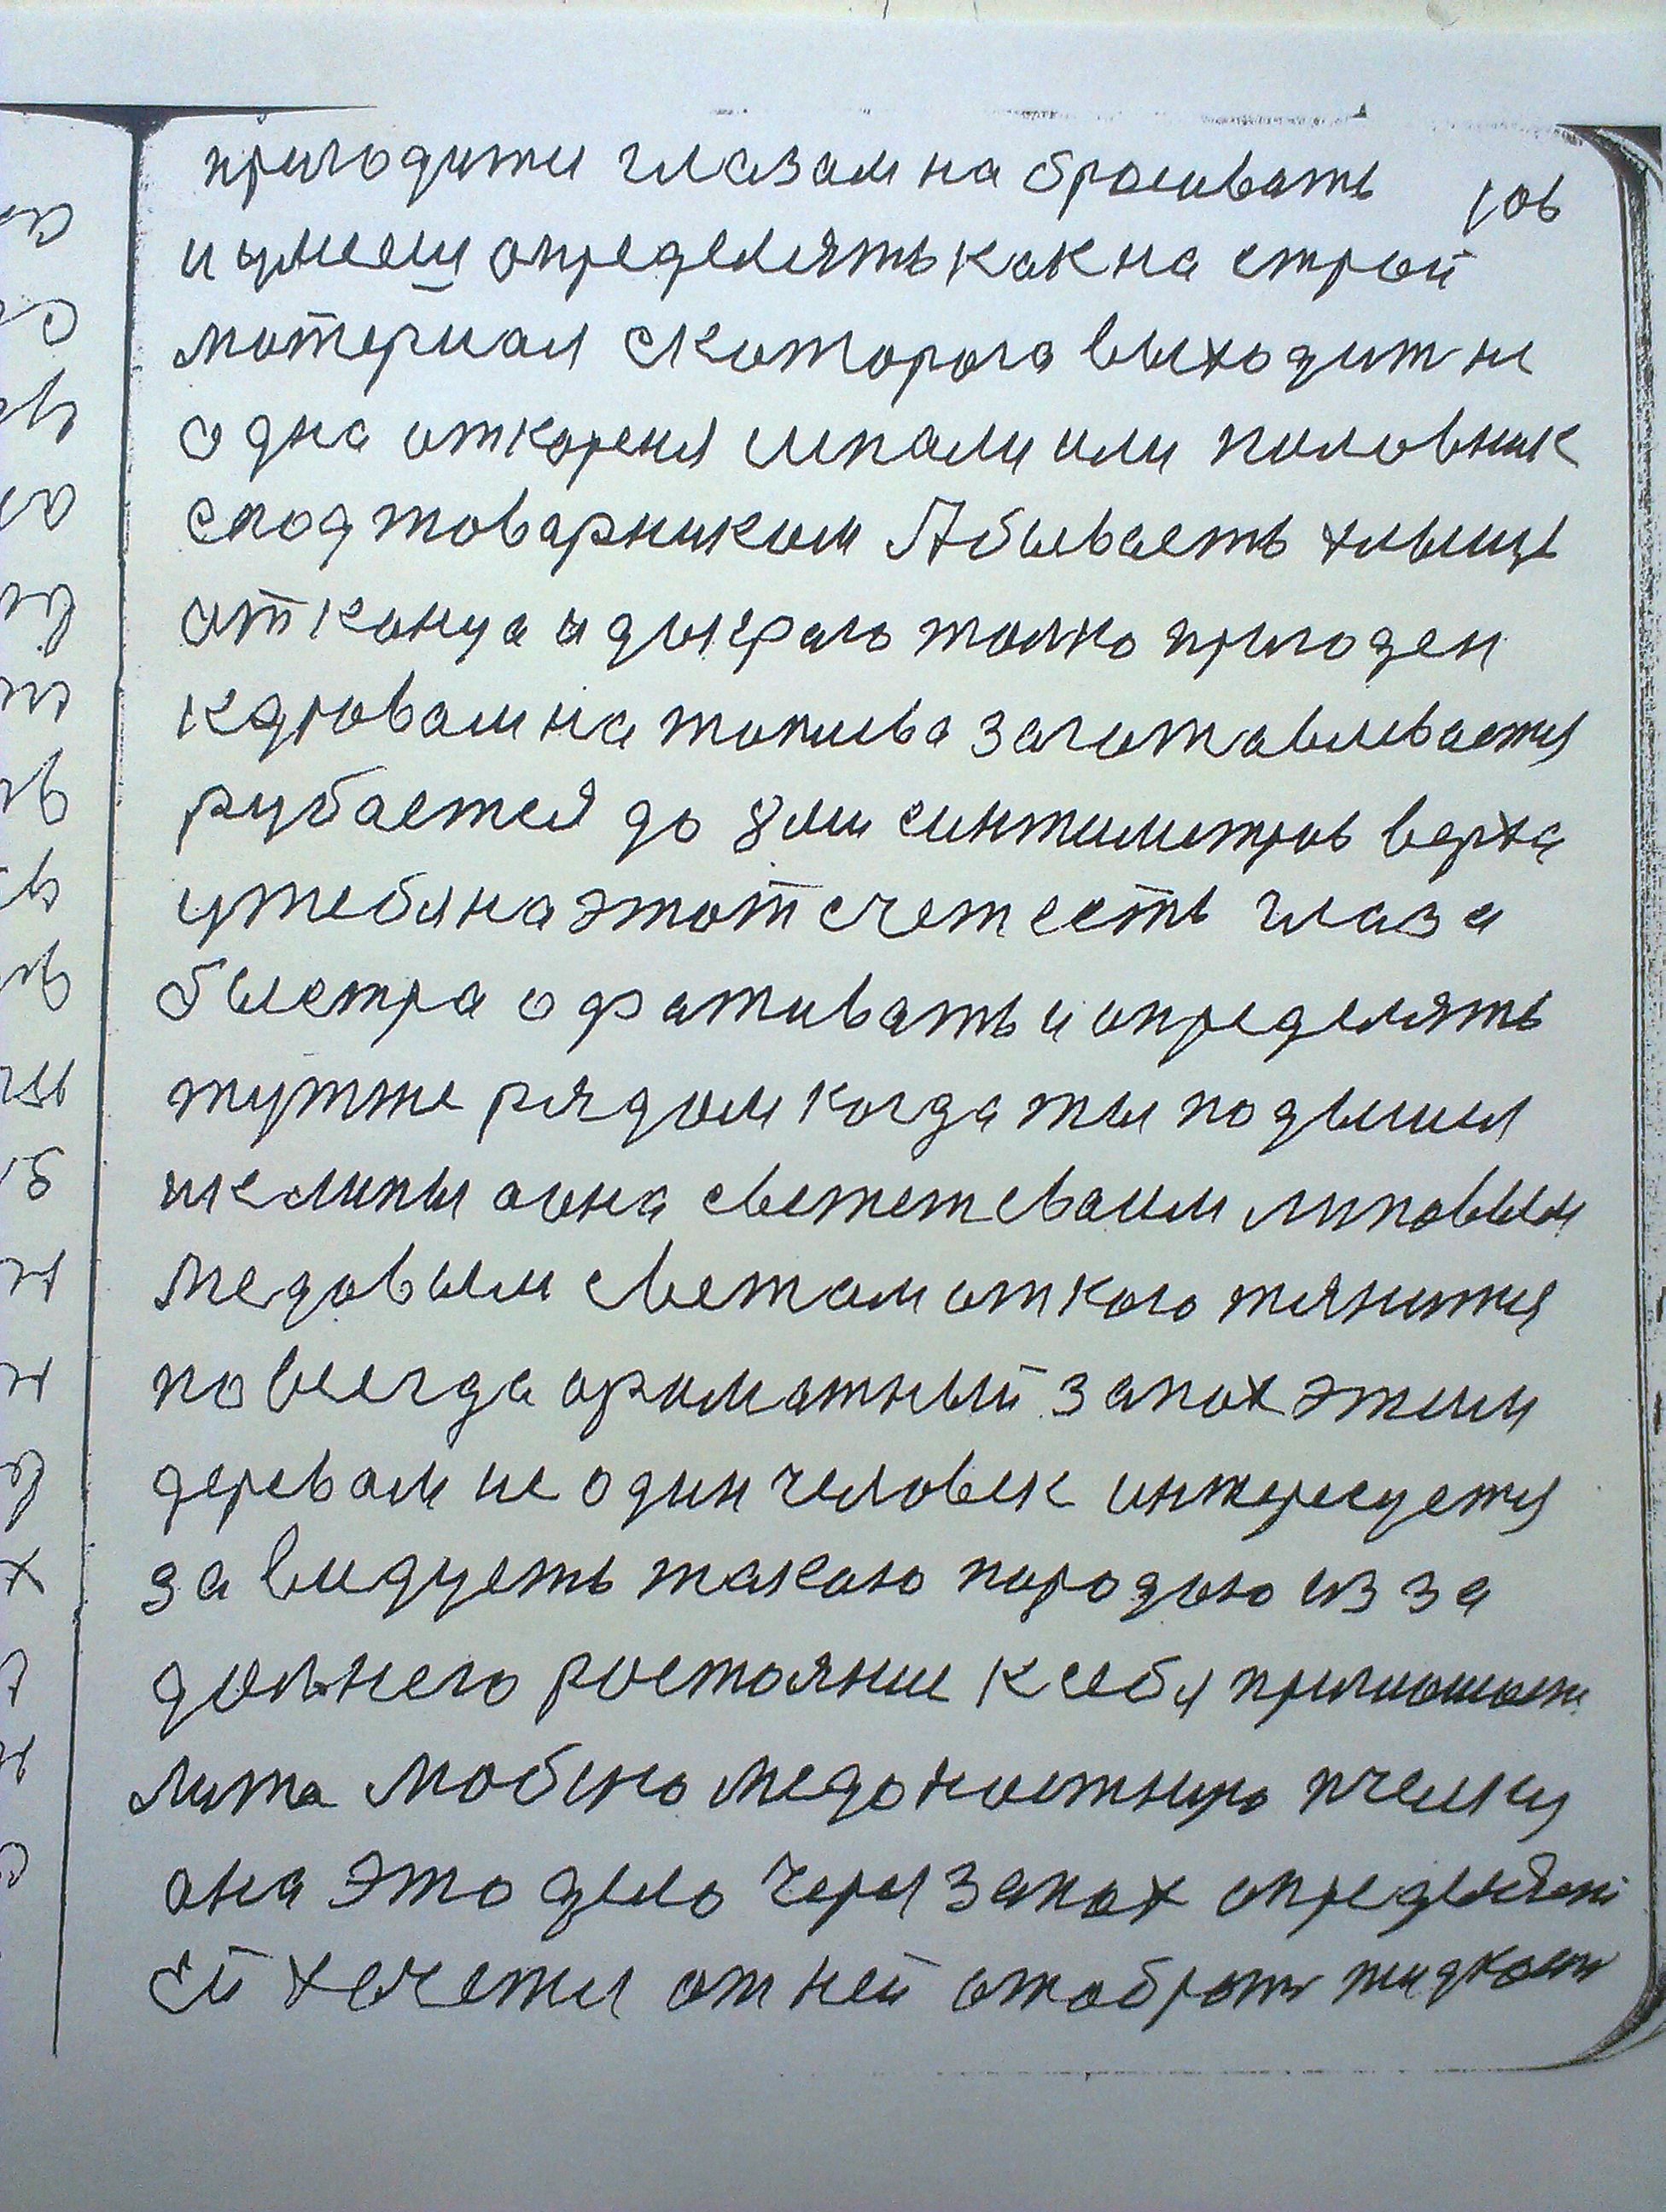 приходити глазам на бросивать
и умееш определять как на строй
мотериал скоторого выходит не
одна откореня шпали или пиловник
сподтоварником А бываеть хлыщь
от конца и докраю толко пригоден
кдровам на топлива заготавливается
рубается до 8 ми синтиметров верха
утебя на этот счет есть глаза
быстра офативать и определять
тутже рядом когда ты подышел
кклипы аона светет сваим липовым
медовым светам откого тянится
по всегда ароматный запах этим
деревам не один человек интересуется
завидуеть такою породою из за
долнего ростояние к себя приглошаеть
лита мобсно медоностную пчелку
она это дело через запах определяеть
ей хочетси от ней отобрать жидкость